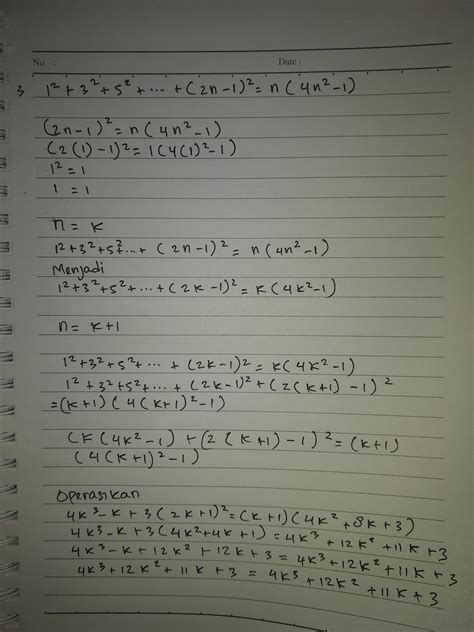 No. : Date :
3 1² + 3² + 5² + ... + (2n-1)² = n(4n²-1)
(2n-1)² = n(4n²-1)
(2(1)-1)² = 1(4(1)²-1)
1² = 1
1 = 1
n = k
1²+3²+5²+...+ (2n-1)² = n(4n²-1)
Menjadi
1²+3²+5²+...+(2k-1)² = k(4k²-1)
n = k+1
1²+3²+5²+ ... + (2k-1)² = k(4k²-1)
1² + 3²+5²+...+ (2k-1)²+(2(k+1) -1)²
=(k+1)(4(k+1)²-1)
(k(4k²-1) + (2(k+1)-1)² = (k+1)
(4(k+1)²-1)
Operasikan
4k³-k+3(2k+1)²=(k+1)(4k²+8k+3)
4k³-k+3(4k²+4k+1) = 4k³+12k²+11k+3
4k³-k+12k²+12k+3 = 4k³+12k²+11k+3
4k³+12k²+11k+3 = 4k³+12k²
+11k+3